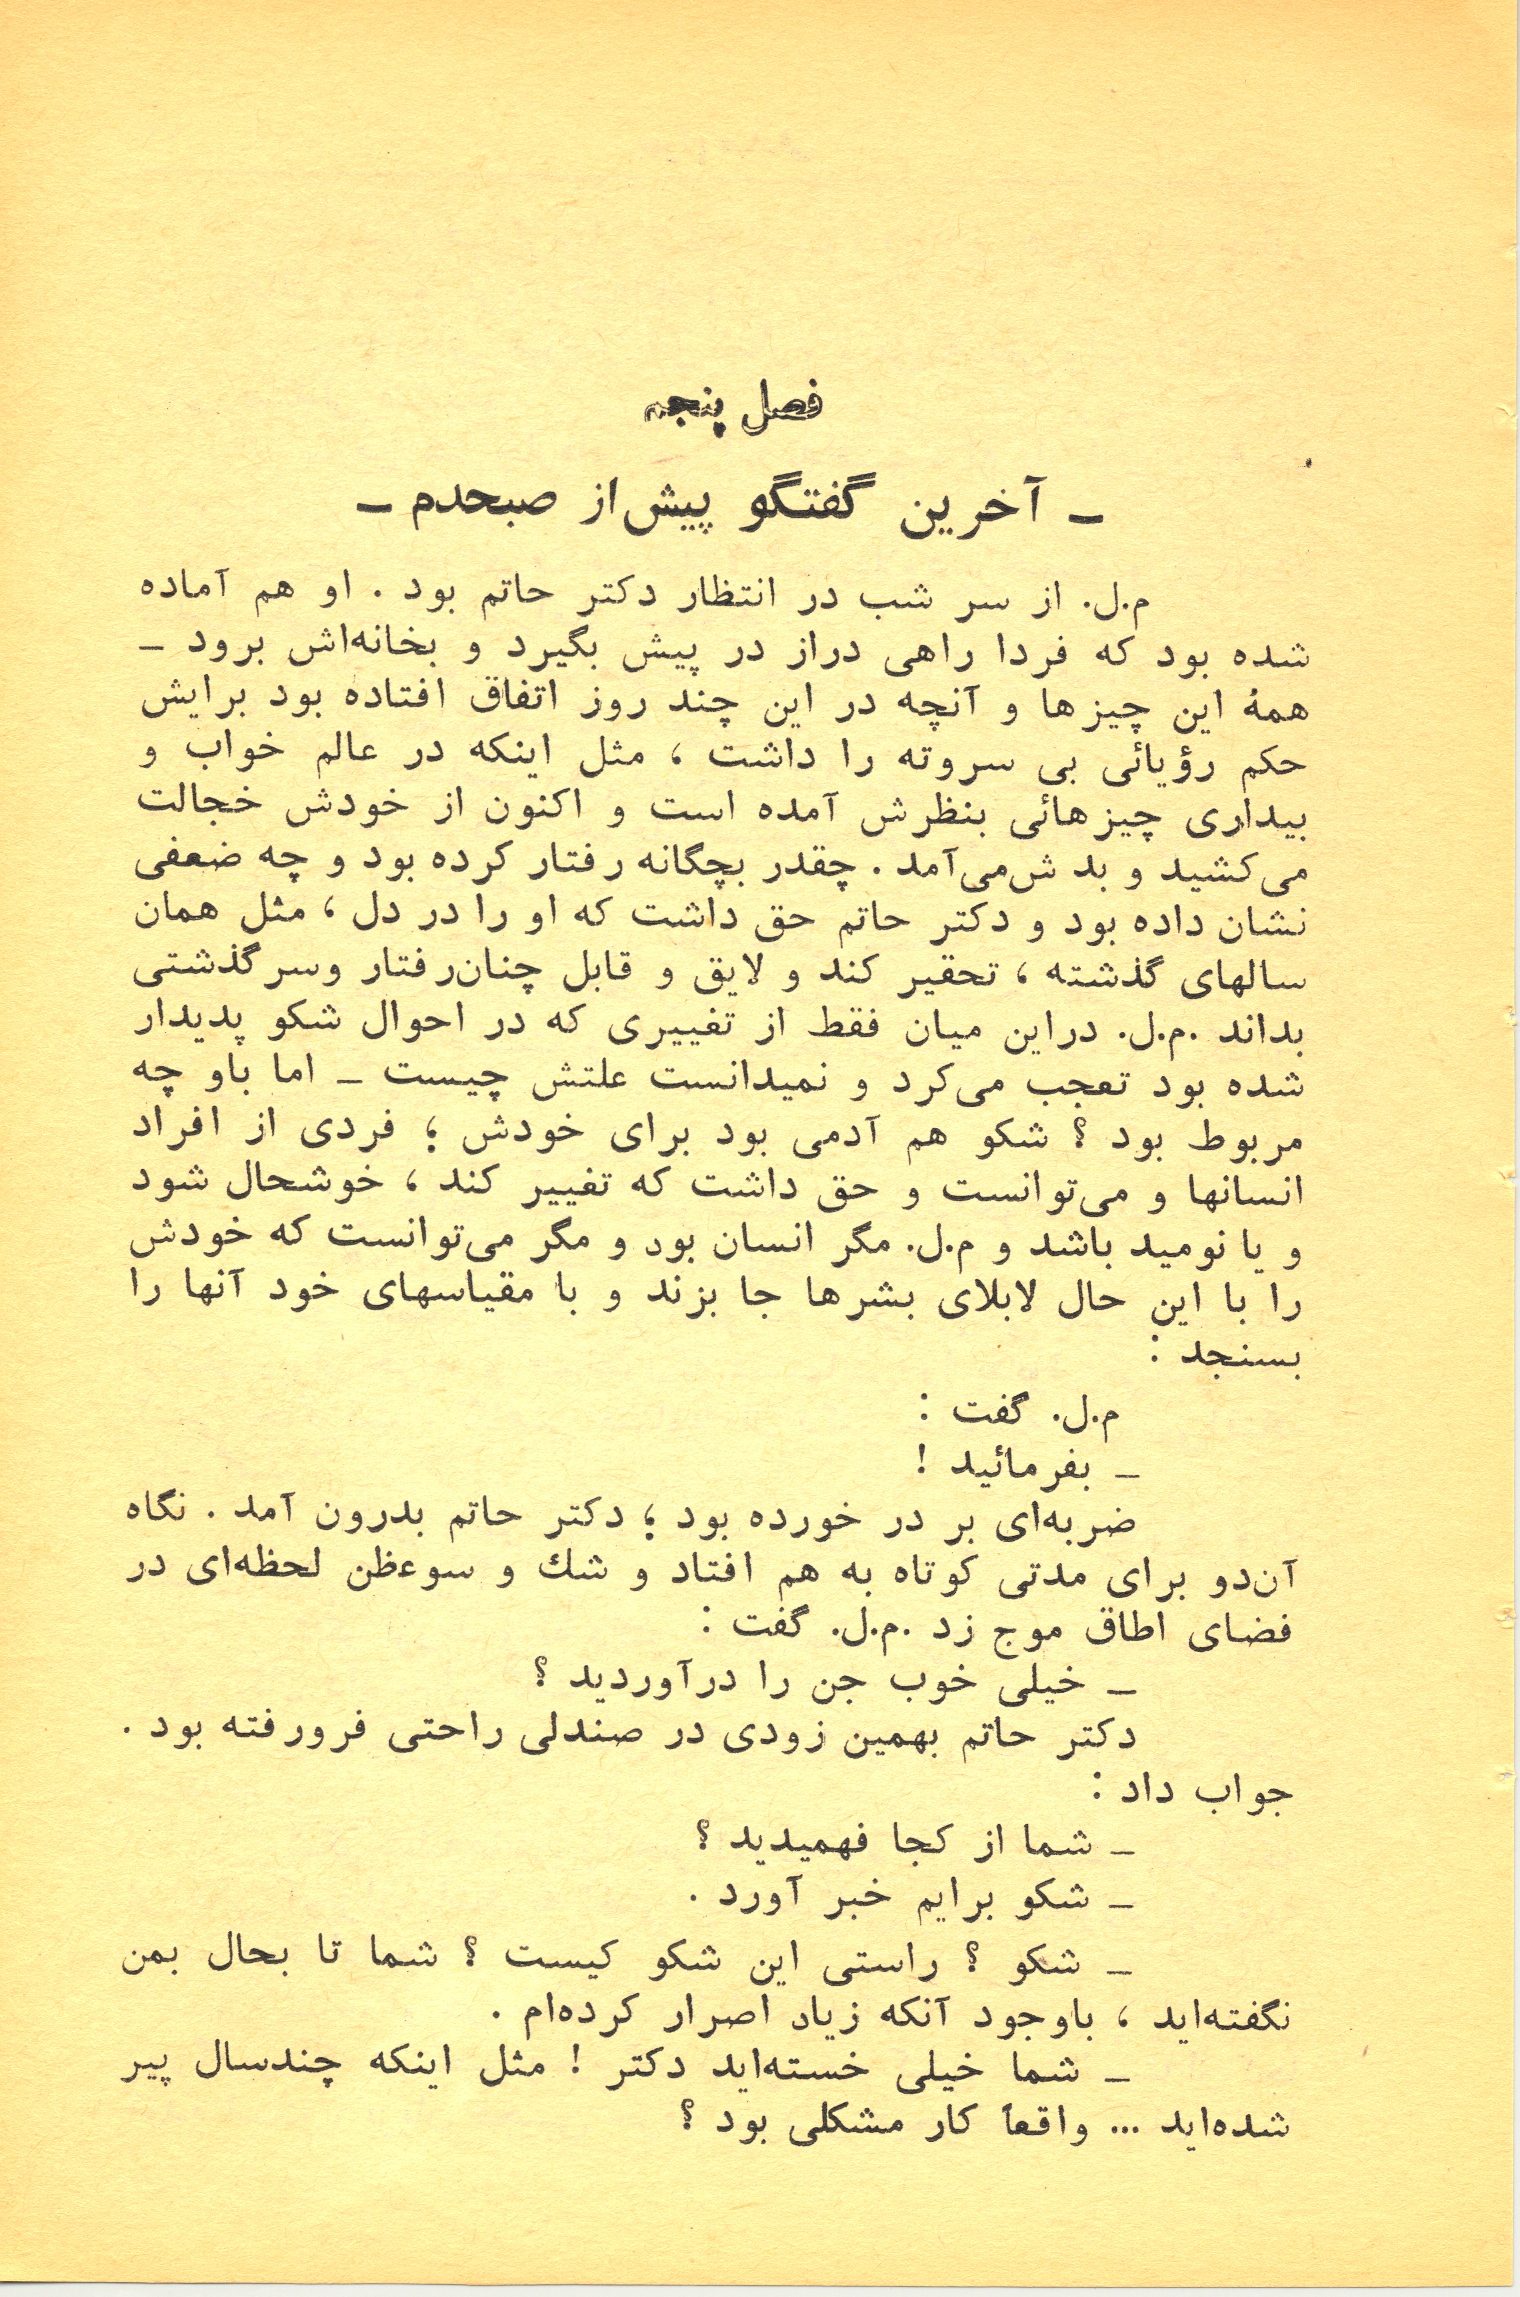 فصل پنجم
ـ آخرین گفتگو پیش‌از صبحدم ـ
م.ل. از سر شب در انتظار دکتر حاتم بود . او هم آماده
شده بود که فردا راهی دراز در پیش بگیرد و بخانه‌اش برود ـ
همهٔ این چیزها و آنچه در این چند روز اتفاق افتاده بود برایش
حکم رؤیائی بی سروته را داشت ، مثل اینکه در عالم خواب و
بیداری چیزهائی بنظرش آمده است و اکنون از خودش خجالت
می‌کشید و بدش‌می‌آمد . چقدر بچگانه رفتار کرده بود و چه ضعفی
نشان داده بود و دکتر حاتم حق داشت که او را در دل ، مثل همان
سالهای گذشته ، تحقیر کند و لایق و قابل چنان‌رفتار وسرگذشتی
بداند .م.ل. دراین میان فقط از تغییری که در احوال شکو پدیدار
شده بود تعجب می‌کرد و نمیدانست علتش چیست ـ اما باو چه
مربوط بود ؟ شکو هم آدمی بود برای خودش ؛ فردی از افراد
انسانها و می‌توانست و حق داشت که تغییر کند ، خوشحال شود
و یا نومید باشد و م.ل. مگر انسان بود و مگر می‌توانست که خودش
را با این حال لابلای بشرها جا بزند و با مقیاسهای خود آنها را
بسنجد :
م.ل. گفت :
ـ بفرمائید !
ضربه‌ای بر در خورده بود ؛ دکتر حاتم بدرون آمد . نگاه
آن‌دو برای مدتی کوتاه به هم افتاد و شك و سوءظن لحظه‌ای در
فضای اطاق موج زد .م.ل. گفت :
ـ خیلی خوب جن را درآوردید ؟
دکتر حاتم بهمین زودی در صندلی راحتی فرورفته بود .
جواب داد :
ـ شما از کجا فهمیدید ؟
ـ شکو برایم خبر آورد .
ـ شکو ؟ راستی این شکو کیست ؟ شما تا بحال بمن
نگفته‌اید ، باوجود آنکه زیاد اصرار کرده‌ام .
ـ شما خیلی خسته‌اید دکتر ! مثل اینکه چندسال پیر
شده‌اید ... واقعاً کار مشکلی بود ؟